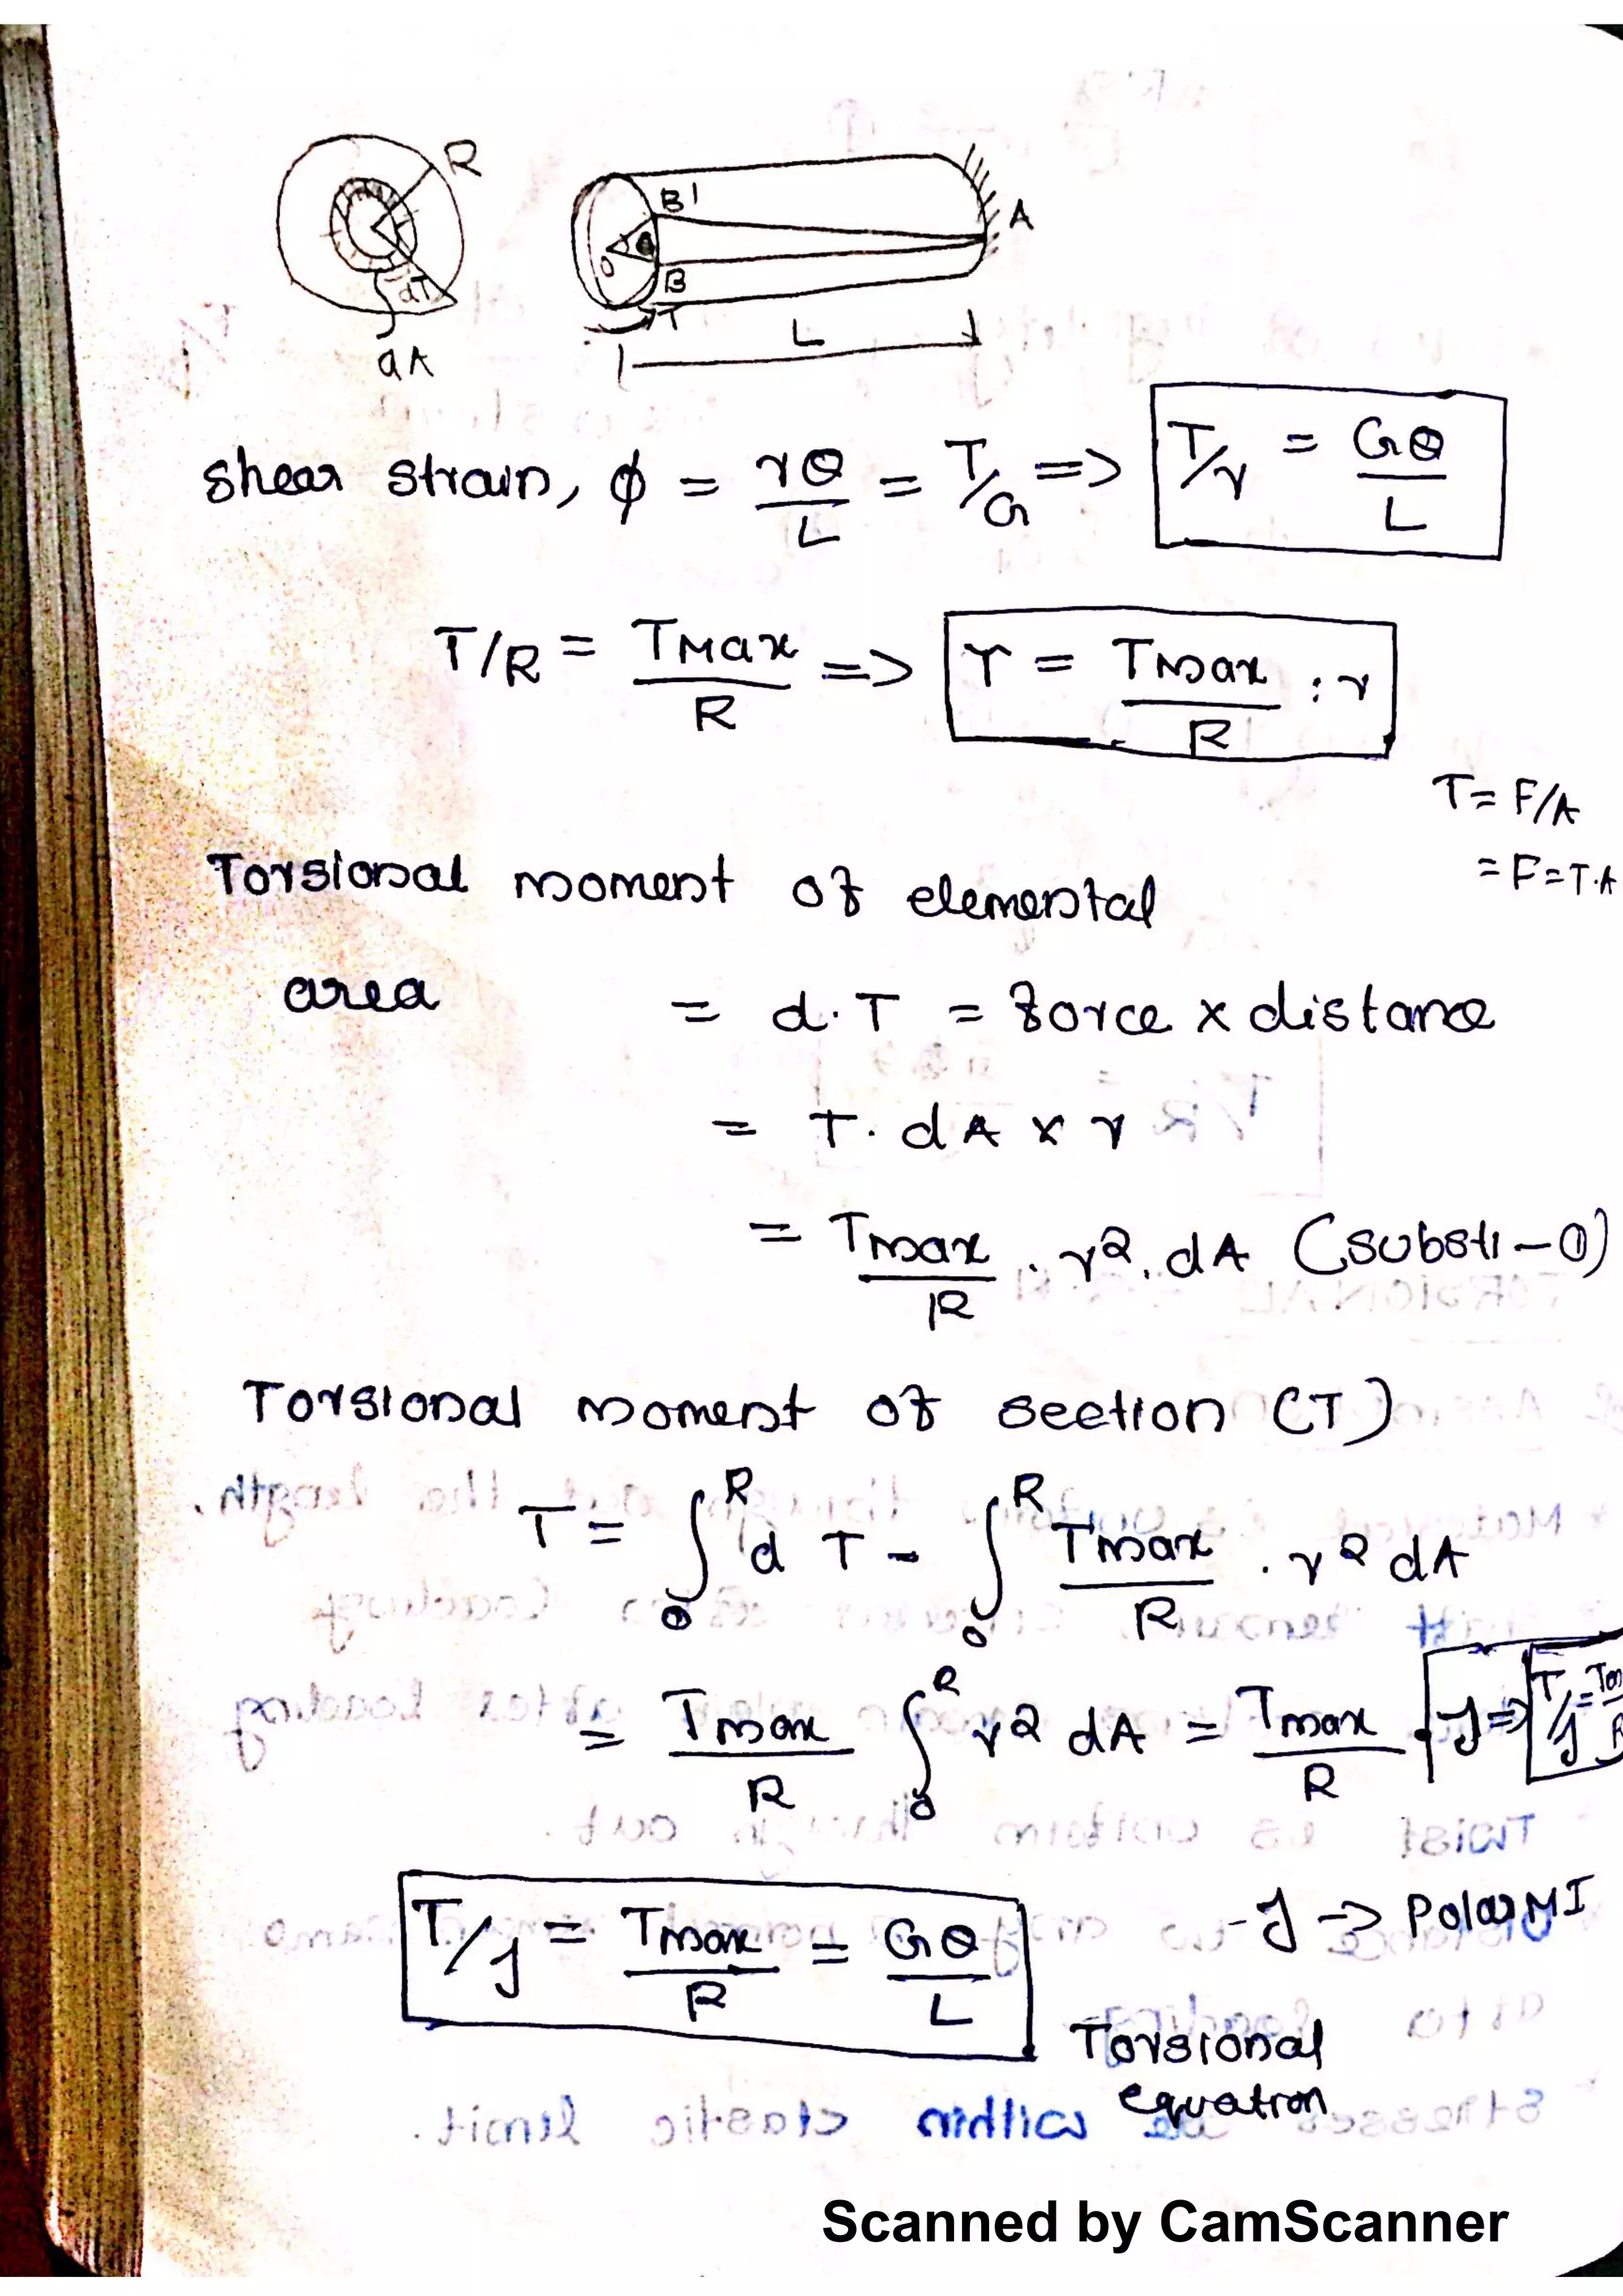 R
dT
dA
B'
θ
O
B
T
A
L
shear strain, ϕ = rθ/L = T/G => T/r = Gθ/L
T/R = TMax/R => T = Tmax/R . r
T = F/A
= F = T.A
Torsional moment of elemental
area = d.T = force x distance
= T. dA x r
= Tmax/R . r². dA (substi - ①)
Torsional moment of section (T)
T = ∫₀ᴿ d T = ∫₀ᴿ Tmax/R . r² dA
= Tmax/R ∫₀ᴿ r² dA = Tmax/R . J => T/J =
T/J = Tmax/R = Gθ/L
- J -> Polar MI
Torsional
equation
Scanned by CamScanner